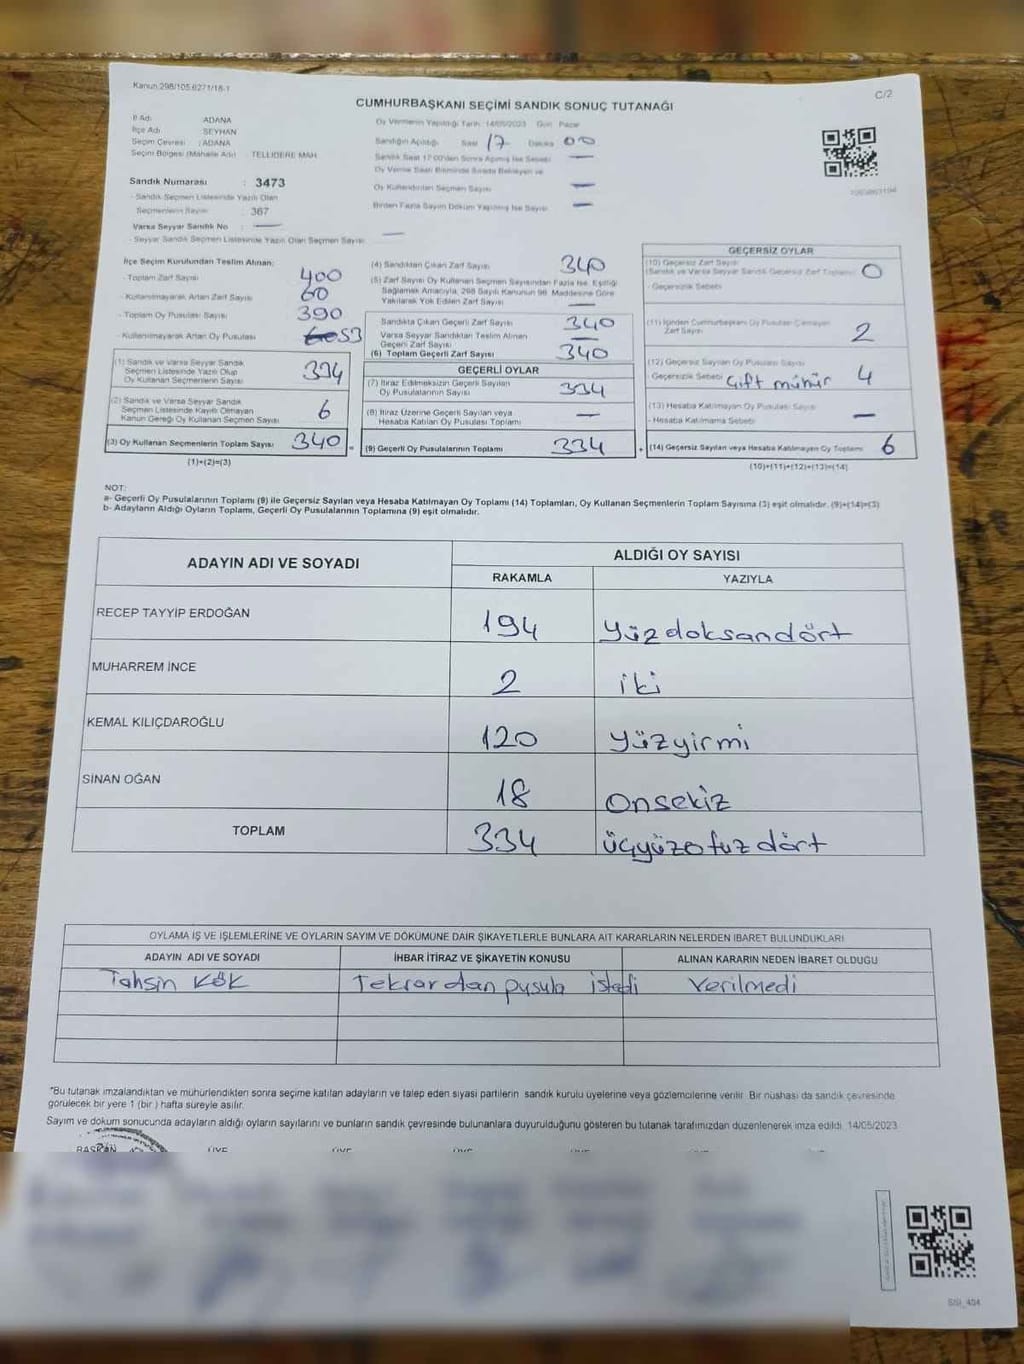 Kanun:298/105,6271/18-1
C/2
CUMHURBAŞKANI SEÇİMİ SANDIK SONUÇ TUTANAĞI
İl Adı : ADANA
İlçe Adı : SEYHAN
Seçim Çevresi : ADANA
Seçim Bölgesi (Mahalle Adı) : TELLİDERE MAH
Sandık Numarası : 3473
- Sandık Seçmen Listesinde Yazılı Olan
Seçmenlerin Sayısı : 367
Varsa Seyyar Sandık No : —
- Seyyar Sandık Seçmen Listesinde Yazılı Olan Seçmen Sayısı —
Oy Vermenin Yapıldığı Tarih: 14/05/2023 Gün: Pazar
Sandığın Açıldığı Saat 17 Dakika 00
Sandık Saat 17:00'den Sonra Açılmış İse Sebebi —
Oy Verme Saati Bitiminde Sırada Bekleyen ve
Oy Kullandırılan Seçmen Sayısı —
Birden Fazla Sayım Döküm Yapılmış İse Sayısı —
İlçe Seçim Kurulundan Teslim Alınan:
- Toplam Zarf Sayısı 400
- Kullanılmayarak Artan Zarf Sayısı 60
- Toplam Oy Pusulası Sayısı 390
- Kullanılmayarak Artan Oy Pusulası 53
(1) Sandık ve Varsa Seyyar Sandık
Seçmen Listesinde Yazılı Olup
Oy Kullanan Seçmenlerin Sayısı 334
(2) Sandık ve Varsa Seyyar Sandık
Seçmen Listesinde Kayıtlı Olmayan
Kanun Gereği Oy Kullanan Seçmen Sayısı 6
(3) Oy Kullanan Seçmenlerin Toplam Sayısı 340
(1)+(2)=(3)
(4) Sandıktan Çıkan Zarf Sayısı 340
(5) Zarf Sayısı Oy Kullanan Seçmen Sayısından Fazla İse, Eşitliği
Sağlamak Amacıyla, 298 Sayılı Kanunun 98. Maddesine Göre
Yakılarak Yok Edilen Zarf Sayısı —
Sandıkta Çıkan Geçerli Zarf Sayısı 340
Varsa Seyyar Sandıktan Teslim Alınan
Geçerli Zarf Sayısı —
(6) Toplam Geçerli Zarf Sayısı 340
GEÇERLİ OYLAR
(7) İtiraz Edilmeksizin Geçerli Sayılan
Oy Pusulasının Sayısı 334
(8) İtiraz Üzerine Geçerli Sayılan veya
Hesaba Katılan Oy Pusulası Toplamı —
= (9) Geçerli Oy Pusulalarının Toplamı 334
GEÇERSİZ OYLAR
(10) Geçersiz Zarf Sayısı
(Sandık ve Varsa Seyyar Sandık Geçersiz Zarf Toplamı) 0
- Geçersizlik Sebebi
(11) İçinden Cumhurbaşkanı Oy Pusulası Çıkmayan
Zarf Sayısı 2
(12) Geçersiz Sayılan Oy Pusulası Sayısı
Geçersizlik Sebebi Çift mühür 4
(13) Hesaba Katılmayan Oy Pusulası Sayısı —
- Hesaba Katılmama Sebebi
+ (14) Geçersiz Sayılan veya Hesaba Katılmayan Oy Toplamı 6
(10)+(11)+(12)+(13)=(14)
NOT:
a- Geçerli Oy Pusulalarının Toplamı (9) ile Geçersiz Sayılan veya Hesaba Katılmayan Oy Toplamı (14) Toplamları, Oy Kullanan Seçmenlerin Toplam Sayısına (3) eşit olmalıdır. (9)+(14)=(3)
b- Adayların Aldığı Oyların Toplamı, Geçerli Oy Pusulalarının Toplamına (9) eşit olmalıdır.
ADAYIN ADI VE SOYADI
ALDIĞI OY SAYISI
RAKAMLA YAZIYLA
RECEP TAYYİP ERDOĞAN 194 yüzdoksandört
MUHARREM İNCE 2 iki
KEMAL KILIÇDAROĞLU 120 yüzyirmi
SİNAN OĞAN 18 Onsekiz
TOPLAM 334 üçyüzotuzdört
OYLAMA İŞ VE İŞLEMLERİNE VE OYLARIN SAYIM VE DÖKÜMÜNE DAİR ŞİKAYETLERLE BUNLARA AİT KARARLARIN NELERDEN İBARET BULUNDUKLARI
ADAYIN ADI VE SOYADI İHBAR İTİRAZ VE ŞİKAYETİN KONUSU ALINAN KARARIN NEDEN İBARET OLDUĞU
Tahsin KÖK Tekrardan pusula istedi Verilmedi
*Bu tutanak imzalandıktan ve mühürlendikten sonra seçime katılan adayların ve talep eden siyasi partilerin sandık kurulu üyelerine veya gözlemcilerine verilir. Bir nüshası da sandık çevresinde
görülecek bir yere 1 (bir) hafta süreyle asılır.
Sayım ve döküm sonucunda adayların aldığı oyların sayılarını ve bunların sandık çevresinde bulunanlara duyurulduğunu gösteren bu tutanak tarafımızdan düzenlenerek imza edildi. 14/05/2023
BAŞKAN ÜYE ÜYE